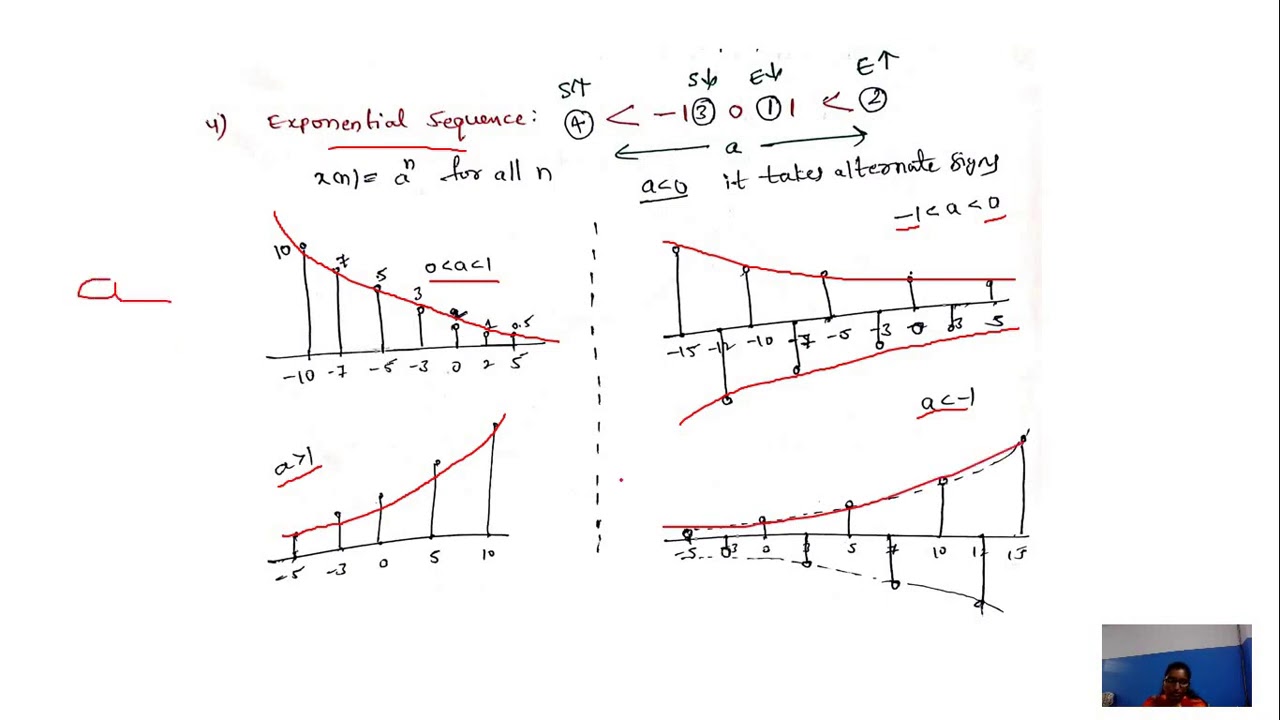 S↑ S↓ E↓ E↑
4) Exponential Sequence: ④ < -1 ③ 0 ① 1 < ②
a
x(n) = aⁿ for all n
a<0 it takes alternate signs
-1<a<0
0<a<1
10 7 5 3 1 0.5
-10 -7 -5 -3 0 2 5
a
-15 -12 -10 -7 -5 -3 0 3 5
a>1
-5 -3 0 5 10
a<-1
-5 -3 0 3 5 7 10 12 15